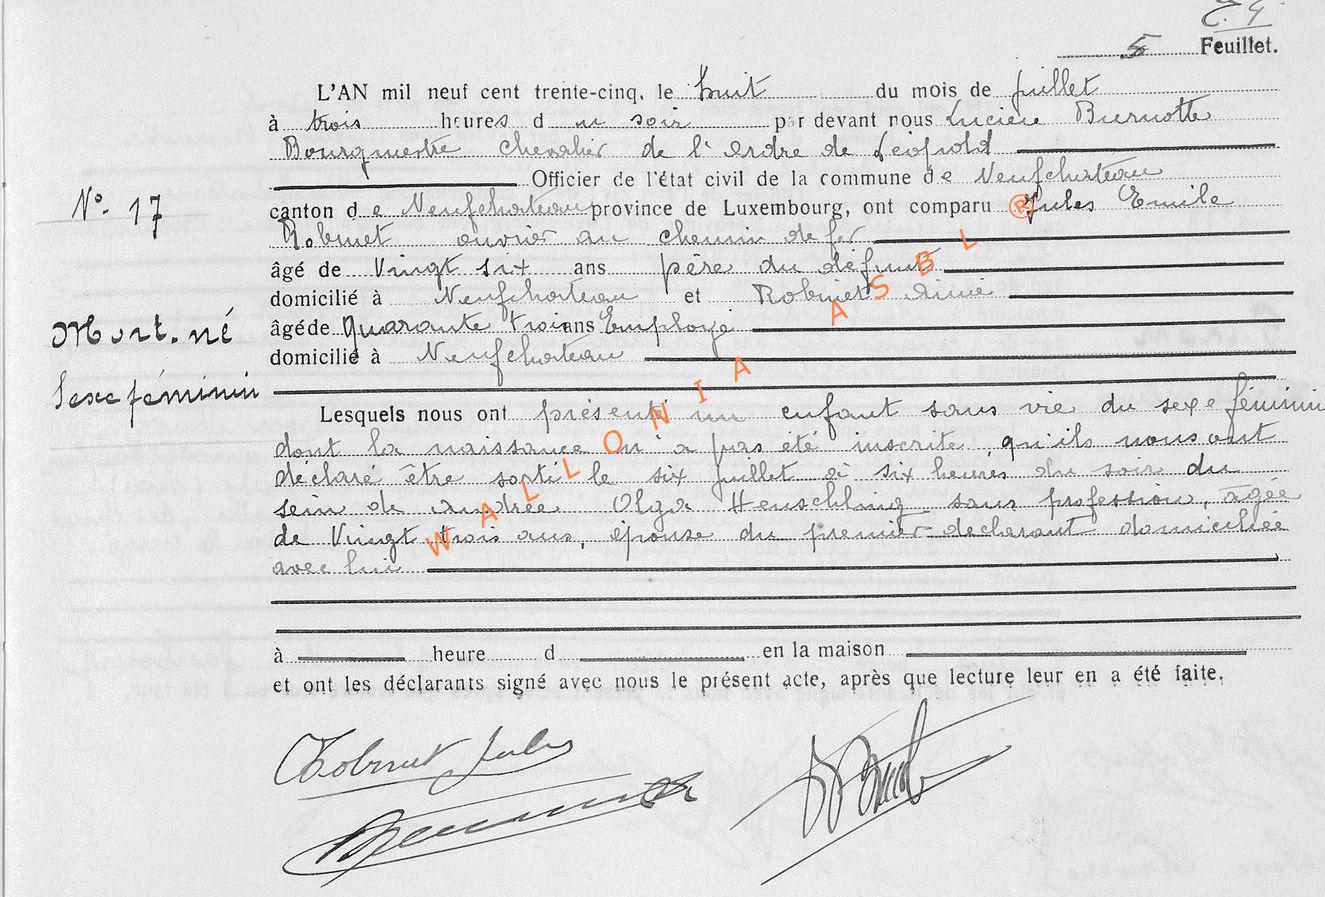 5 Feuillet.
L'AN mil neuf cent trente-cinq, le huit du mois de juillet
à trois heures du soir par devant nous Lucien Burnotte
Bourgmestre Chevalier de l'Ordre de Léopold
Officier de l'état civil de la commune de Neufchateau
N° 17
canton de Neufchateau province de Luxembourg, ont comparu Jules Emile
Robinet ouvrier au chemin de fer
âgé de Vingt six ans père du défunt
domicilié à Neufchateau et Robinet
Mort-né
âgé de quarante trois ans Employé
domicilié à Neufchateau
Sexe féminin
Lesquels nous ont présenté un enfant sans vie du sexe féminin
dont la naissance n'a pas été inscrite, qu'ils nous ont
déclaré être sorti le six juillet à six heures du soir du
sein de Andrée Olga Henschling sans profession, agée
de Vingt trois ans, épouse du premier déclarant domiciliée
avec lui
à heure d en la maison
et ont les déclarants signé avec nous le présent acte, après que lecture leur en a été faite.
Robinet Jules
WALLONIA ASBL ®